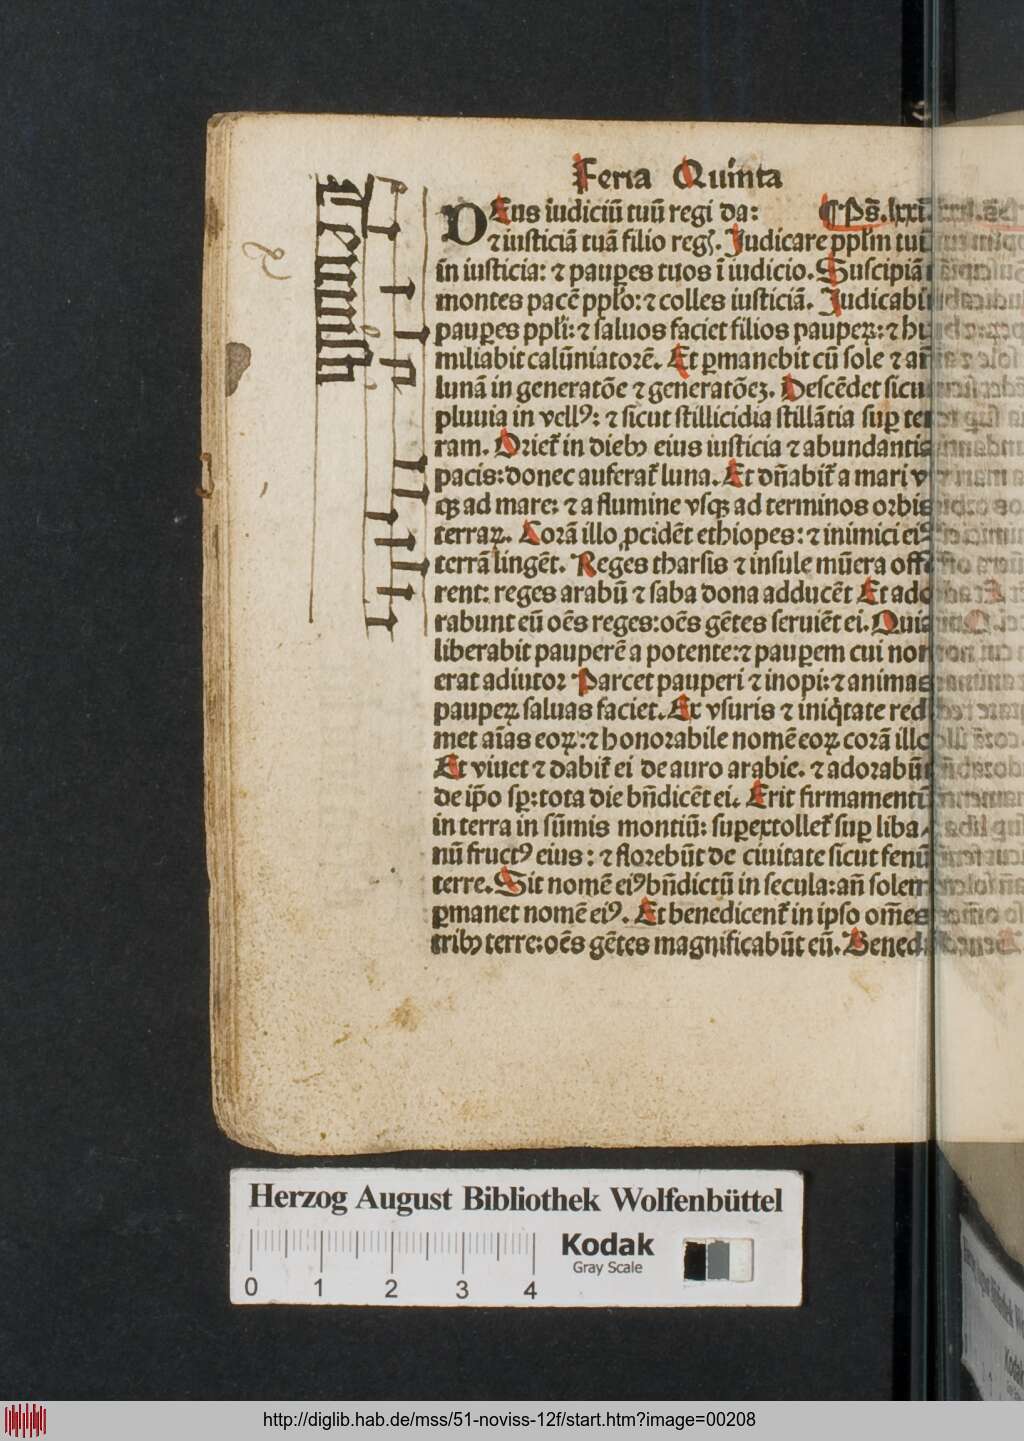 Feria Quinta
DEus iudiciũ tuũ regi da: ¶ Ps̃. lxxi.
⁊ iusticiã tuã filio regꝭ. Judicare ppl̃m tuũ
in iusticia: ⁊ paupes tuos ĩ iudicio. Suscipiãt
montes pacẽ ppl̃o: ⁊ colles iusticiã. Judicabit
paupes ppl̃i: ⁊ saluos faciet filios paupeꝝ: ⁊ hu
miliabit calũniatorẽ. Et ꝑmanebit cũ sole ⁊ añ
lunã in generatõe ⁊ generatõeꝫ. Descẽdet sicut
pluuia in vellꝰ: ⁊ sicut stillicidia stillãtia suꝑ ter
ram. Orieť in diebꝰ eius iusticia ⁊ abundantia
pacis: donec auferaľ luna. Et dñabiť a mari v
sqꝫ ad mare: ⁊ a flumine vsqꝫ ad terminos orbis
terraꝝ. Corã illo ꝓcidẽt ethiopes: ⁊ inimici eiꝰ
terrã lingẽt. Reges tharsis ⁊ insule mũera offe
rent: reges arabũ ⁊ saba dona adducẽt Et ado
rabunt eũ oẽs reges: oẽs gẽtes seruiẽt ei. Quia
liberabit pauperẽ a potente: ⁊ pauꝑem cui non
erat adiutor Parcet pauperi ⁊ inopi: ⁊ animas
pauꝑeꝝ saluas faciet. Ex vsuris ⁊ iniq̃tate redi
met aĩas eoꝝ: ⁊ honorabile nomẽ eoꝝ corã illo
Et viuet ⁊ dabiť ei de auro arabie. ⁊ adorabũt
de ip̃o sꝑ: tota die bñdicẽt ei. Erit firmamentũ
in terra in sũmis montiũ: suꝑextolleť suꝑ liba
nũ fructꝰ eius: ⁊ florebũt de ciuitate sicut fenũ
terre. Sit nomẽ eiꝰ bñdictũ in secula: añ solem
ꝑmanet nomẽ eiꝰ. Et benedicenť in ipso om̃es
tribꝰ terre: oẽs gẽtes magnificabũt eũ. Bened
Herzog August Bibliothek Wolfenbüttel
0 1 2 3 4
Kodak
Gray Scale
http://diglib.hab.de/mss/51-noviss-12f/start.htm?image=00208